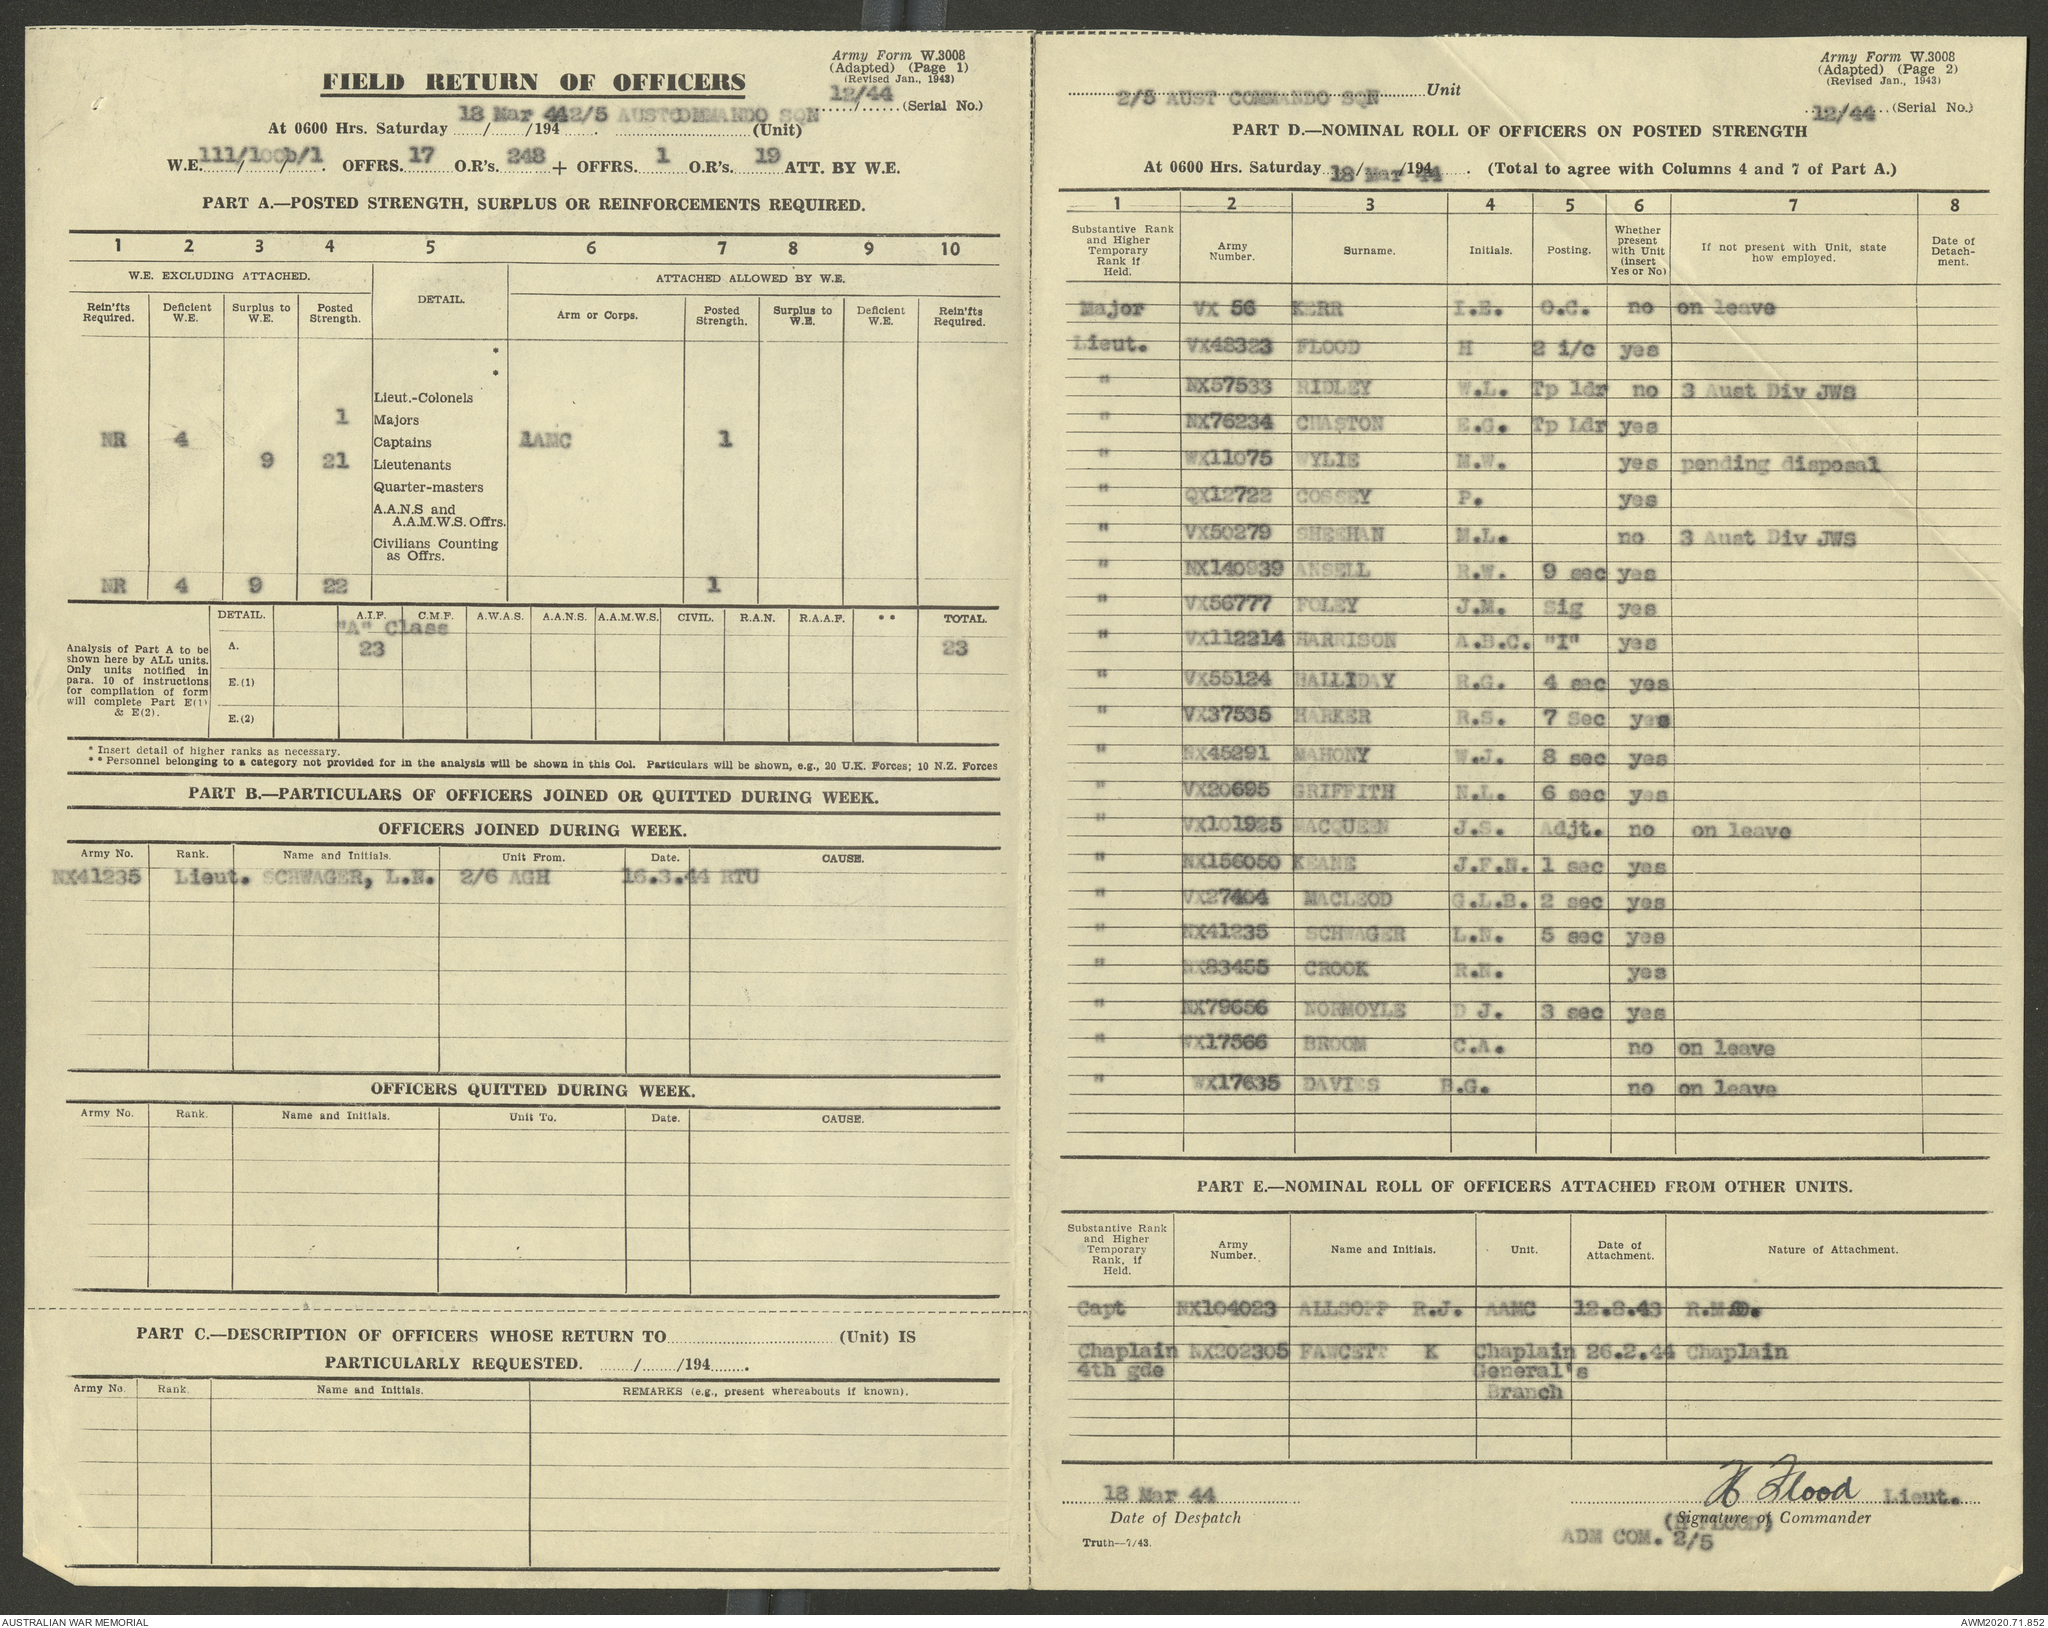 Army Form W.3008
(Adapted) (Page 1)
(Revised Jan., 1943)
FIELD RETURN OF OFFICERS
12/44 (Serial No.)
At 0600 Hrs. Saturday 18 Mar 44 /194 . 2/5 AUST COMMANDO SQN (Unit)
W.E. 111/10cb/1 . OFFRS. 17 O.R's. 248 + OFFRS. 1 O.R's. 19 ATT. BY W.E.
PART A.—POSTED STRENGTH, SURPLUS OR REINFORCEMENTS REQUIRED.
1 2 3 4 5 6 7 8 9 10
W.E. EXCLUDING ATTACHED. DETAIL. ATTACHED ALLOWED BY W.E.
Rein'fts Required. Deficient W.E. Surplus to W.E. Posted Strength. Arm or Corps. Posted Strength. Surplus to W.E. Deficient W.E. Rein'fts Required.
*
*
Lieut.-Colonels
1 Majors
NR 4 Captains 1AMC 1
9 21 Lieutenants
Quarter-masters
A.A.N.S and
A.A.M.W.S. Offrs.
Civilians Counting
as Offrs.
NR 4 9 22 1
DETAIL. A.I.F. C.M.F. A.W.A.S. A.A.N.S. A.A.M.W.S. CIVIL. R.A.N. R.A.A.F. ** TOTAL.
"A" Class
Analysis of Part A to be shown here by ALL units. Only units notified in para. 10 of instructions for compilation of form will complete Part E(1) & E(2).
A. 23 23
E.(1)
E.(2)
* Insert detail of higher ranks as necessary.
** Personnel belonging to a category not provided for in the analysis will be shown in this Col. Particulars will be shown, e.g., 20 U.K. Forces; 10 N.Z. Forces
PART B.—PARTICULARS OF OFFICERS JOINED OR QUITTED DURING WEEK.
OFFICERS JOINED DURING WEEK.
Army No. Rank. Name and Initials. Unit From. Date. CAUSE.
NX41235 Lieut. SCHWAGER, L.N. 2/6 AGH 16.3.44 RTU
OFFICERS QUITTED DURING WEEK.
Army No. Rank. Name and Initials. Unit To. Date. CAUSE.
PART C.—DESCRIPTION OF OFFICERS WHOSE RETURN TO (Unit) IS
PARTICULARLY REQUESTED. / /194 .
Army No. Rank. Name and Initials. REMARKS (e.g., present whereabouts if known).
Army Form W.3008
(Adapted) (Page 2)
(Revised Jan., 1943)
2/5 AUST COMMANDO SQN Unit
12/44 (Serial No.)
PART D.—NOMINAL ROLL OF OFFICERS ON POSTED STRENGTH
At 0600 Hrs. Saturday 18 Mar 44 /194 . (Total to agree with Columns 4 and 7 of Part A.)
1 2 3 4 5 6 7 8
Substantive Rank and Higher Temporary Rank if Held. Army Number. Surname. Initials. Posting. Whether present with Unit (insert Yes or No) If not present with Unit, state how employed. Date of Detach-ment.
Major VX 56 KERR I.E. O.C. no on leave
Lieut. VX48323 FLOOD H 2 i/c yes
" NX57533 RIDLEY W.L. Tp ldr no 3 Aust Div JWS
" NX76234 CHASTON E.G. Tp Ldr yes
" WX11075 WYLIE M.W. yes pending disposal
" QX12722 COSSEY P. yes
" VX50279 SHEEHAN M.L. no 3 Aust Div JWS
" NX140939 ANSELL R.W. 9 sec yes
" VX56777 FOLEY J.M. Sig yes
" VX112214 HARRISON A.B.C. "I" yes
" VX55124 HALLIDAY R.G. 4 sec yes
" VX37535 HARKER R.S. 7 Sec yes
" NX45291 MAHONY W.J. 8 sec yes
" VX20695 GRIFFITH N.L. 6 sec yes
" VX101925 MACQUEEN J.S. Adjt. no on leave
" NX156050 KEANE J.F.N. 1 sec yes
" VX27404 MACLEOD G.L.B. 2 sec yes
" NX41235 SCHWAGER L.N. 5 sec yes
" NX83455 CROOK R.N. yes
" NX79656 NORMOYLE D J. 3 sec yes
" WX17566 BROOM C.A. no on leave
" WX17635 DAVIES B.G. no on leave
PART E.—NOMINAL ROLL OF OFFICERS ATTACHED FROM OTHER UNITS.
Substantive Rank and Higher Temporary Rank, if Held. Army Number. Name and Initials. Unit. Date of Attachment. Nature of Attachment.
Capt NX104023 ALLSOPP R.J. AAMC 12.8.43 R.M.O.
Chaplain NX202305 FAWCETT K Chaplain 26.2.44 Chaplain
4th gde General's
Branch
18 Mar 44 H Flood Lieut.
Date of Despatch Signature of Commander
(H FLOOD)
Truth—7/43. ADM COM. 2/5
AUSTRALIAN WAR MEMORIAL AWM2020.71.852